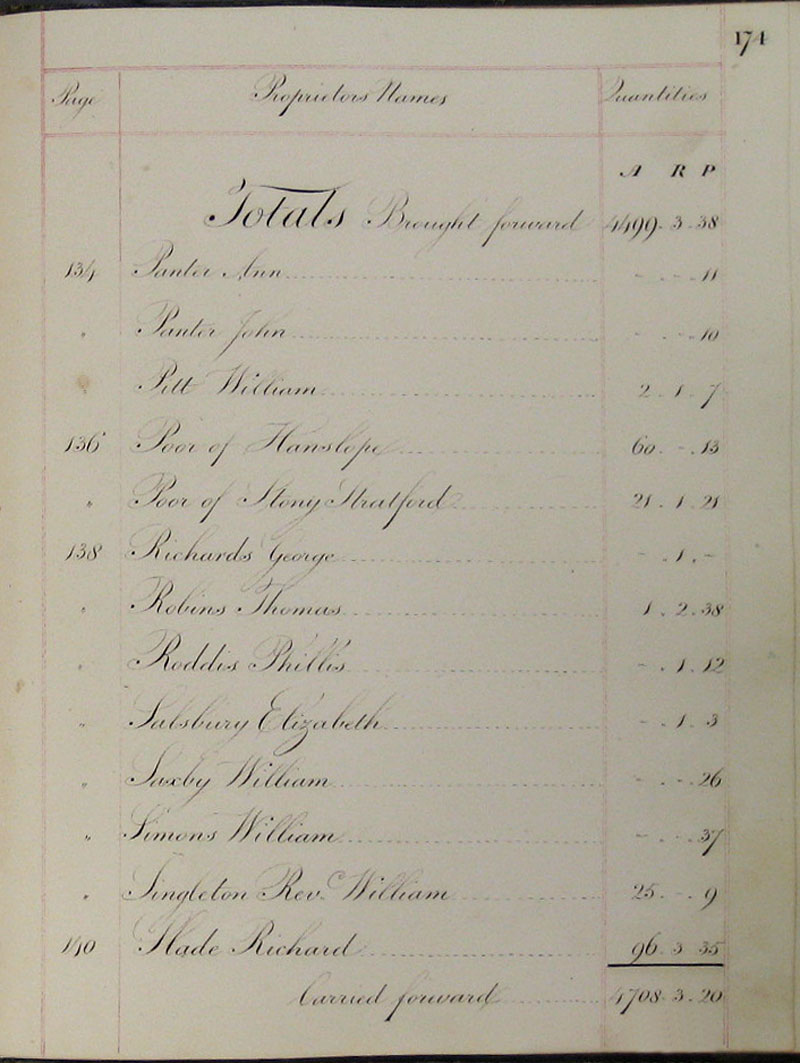 174
Page Proprietors Names Quantities
A R P
Totals Brought forward 4499. 3. 38
134 Panter Ann - . - . 11
" Panter John - . - . 10
" Pitt William 2 . 1 . 7
136 Poor of Hanslope 60 . - . 13
" Poor of Stony Stratford 21 . 1 . 21
138 Richards George - . 1 . -
" Robins Thomas 1 . 2 . 38
" Roddis Phillis - . 1 . 12
" Salsbury Elizabeth - . 1 . 3
" Saxby William - . - . 26
" Simons William - . - . 37
" Singleton Rev. William 25 . - . 9
140 Slade Richard 96 . 3 . 35
Carried forward 4708 . 3 . 20